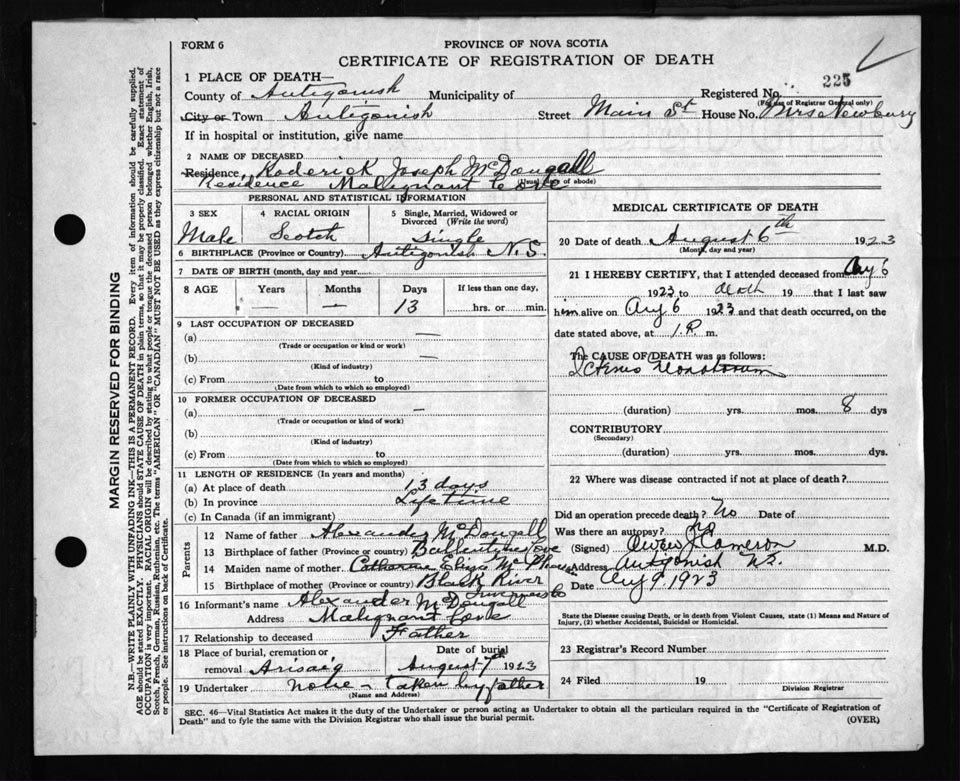 FORM 6
PROVINCE OF NOVA SCOTIA
CERTIFICATE OF REGISTRATION OF DEATH
225
1 PLACE OF DEATH—
County of Antigonish Municipality of Registered No.
(For use of Registrar General only)
City or Town Antigonish Street Main St House No. Mrs Newbury
If in hospital or institution, give name
2 NAME OF DECEASED Roderick Joseph McDougall
Residence, (Usual place of abode)
Residence Malignant Cove
PERSONAL AND STATISTICAL INFORMATION
3 SEX 4 RACIAL ORIGIN 5 Single, Married, Widowed or Divorced (Write the word)
Male Scotch Single
6 BIRTHPLACE (Province or Country) Antigonish N.S.
7 DATE OF BIRTH (month, day and year)
8 AGE Years Months Days If less than one day,
— — 13 hrs. or min.
9 LAST OCCUPATION OF DECEASED
(a) —
(Trade or occupation or kind or work)
(b) —
(Kind of industry)
(c) From to
(Date from which to which so employed)
10 FORMER OCCUPATION OF DECEASED
(a) —
(Trade or occupation or kind of work)
(b)
(Kind of industry)
(c) From to
(Date from which to which so employed)
11 LENGTH OF RESIDENCE (In years and months)
(a) At place of death 13 days
(b) In province Lifetime
(c) In Canada (if an immigrant)
Parents
12 Name of father Alexander McDougall
13 Birthplace of father (Province or country) Ballentynes Cove
14 Maiden name of mother Catharine Eliza
15 Birthplace of mother (Province or country) Black River
Inverness Co
16 Informant's name Alexander McDougall
Address Malignant Cove
17 Relationship to deceased Father
18 Place of burial, cremation or Date of burial
removal Arisaig August 7th 1923
19 Undertaker None - taken by father
(Name and Address)
MEDICAL CERTIFICATE OF DEATH
20 Date of death August 6th 1923
(Month, day and year)
21 I HEREBY CERTIFY, that I attended deceased from Aug 6
1923 to death 19 that I last saw
him alive on Aug 6 1923 and that death occurred, on the
date stated above, at 1.P. m.
The CAUSE OF DEATH was as follows:
Icterus Neonatorum
(duration) yrs. mos. 8 dys
CONTRIBUTORY
(Secondary)
(duration) yrs. mos. dys.
22 Where was disease contracted if not at place of death?
Did an operation precede death? No Date of
Was there an autopsy? No
(Signed) Cameron M.D.
Address Antigonish N.S.
Date Aug 9. 1923
State the Disease causing Death, or in death from Violent Causes, state (1) Means and Nature of
Injury, (2) whether Accidental, Suicidal or Homicidal.
23 Registrar's Record Number
24 Filed 19
Division Registrar
SEC. 46—Vital Statistics Act makes it the duty of the Undertaker or person acting as Undertaker to obtain all the particulars required in the "Certificate of Registration of
Death" and to fyle the same with the Division Registrar who shall issue the burial permit.
(OVER)
MARGIN RESERVED FOR BINDING
N.B.—WRITE PLAINLY WITH UNFADING INK—THIS IS A PERMANENT RECORD. Every item of information should be carefully supplied.
AGE should be stated EXACTLY. PHYSICIANS should STATE CAUSE OF DEATH in plain terms, so that it may be properly classified. Exact statement of
OCCUPATION is very important. RACIAL ORIGIN will be described by stating to what people or tongue the deceased person belonged whether English, Irish,
Scotch, French, German, Russian, Ruthenian, etc. The terms "AMERICAN" OR "CANADIAN" MUST NOT BE USED as they express citizenship but not a race
or people. See instructions on back of Certificate.